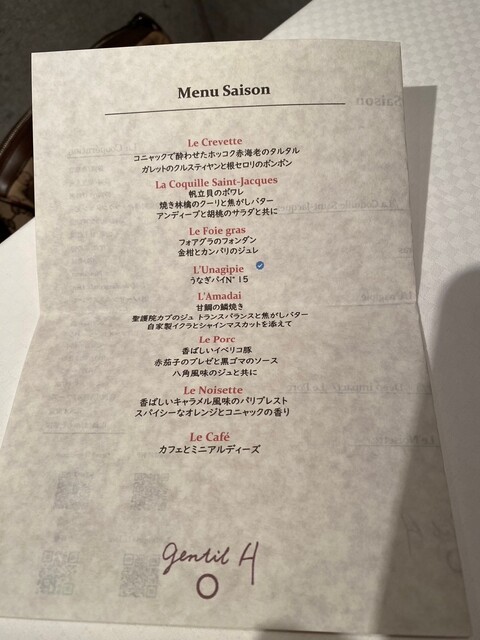 Menu Saison
Le Crevette
コニャックで酔わせたホッコク赤海老のタルタル
ガレットのクルスティヤンと根セロリのボンボン
La Coquille Saint-Jacques
帆立貝のポワレ
焼き林檎のクーリと焦がしバター
アンディーブと胡桃のサラダと共に
Le Foie gras
フォアグラのフォンダン
金柑とカンパリのジュレ
L'Unagipie
うなぎパイN°15
L'Amadai
甘鯛の鱗焼き
聖護院カブのジュ トランスパランスと焦がしバター
自家製イクラとシャインマスカットを添えて
Le Porc
香ばしいイベリコ豚
赤茄子のブレゼと黒ゴマのソース
八角風味のジュと共に
Le Noisette
香ばしいキャラメル風味のパリブレスト
スパイシーなオレンジとコニャックの香り
Le Café
カフェとミニアルディーズ
gentil H